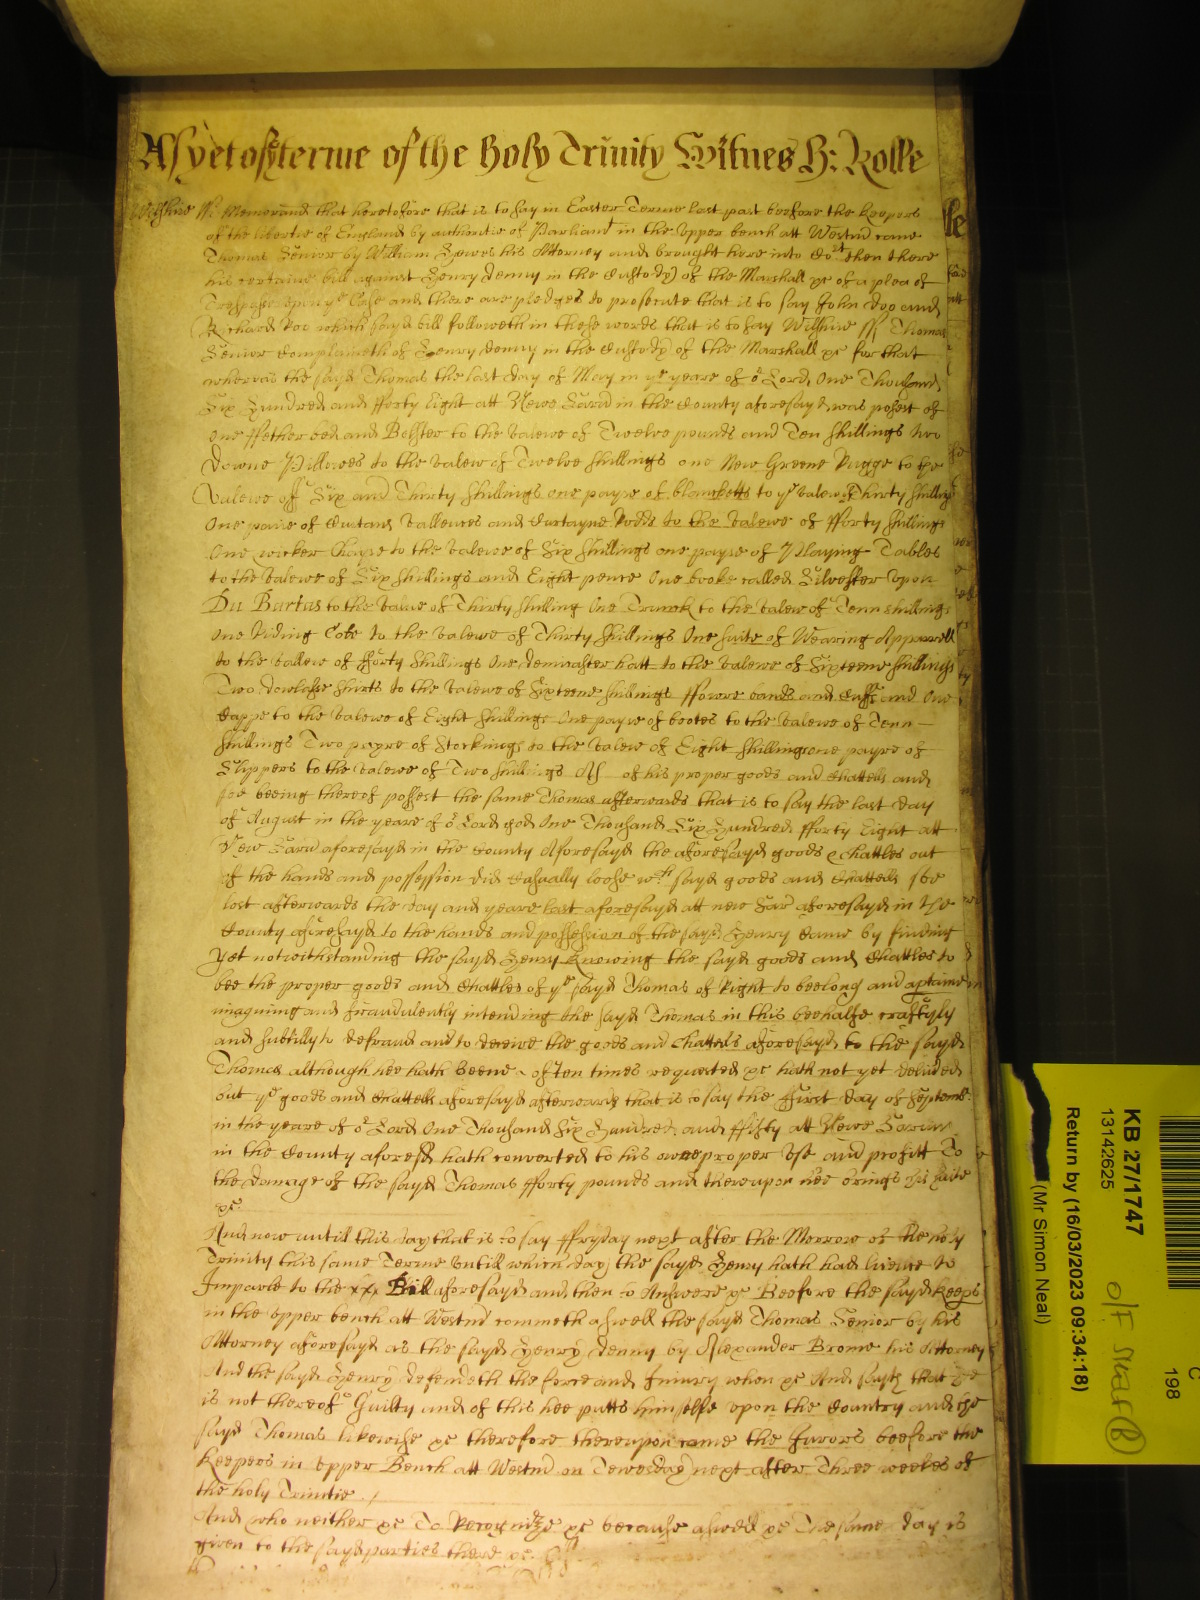 As yet of ye terme of the Holy Trinity Witnes H: Rolle
Wilshire ss Memorand that heretofore that is to say in Easter Terme last past beefore the Keepers
of the libertie of England by authoritie of Parliamt in the upper bench att Westmr came
Thomas Senior by William his Attorney and brought here into Cort then there
his certaine bill against Henry Denny in the Custody of the Marshall &c of a plea of
Trespasse upon ye Case and there are pledges to prosecute that is to say John Doo and
Richard Roo which sayd bill followeth in these words that is to say Wilshire ss Thomas
Senior Complaineth of Henry Denny in the Custody of the Marshall &c for that
whereas the sayd Thomas the last day of May in ye yeare of or Lord One Thousand
Six Hundred and fforty Eight att Newe Sarum in the County aforesayd was posest of
one ffether bed and Bolster to the valewe of Twelve pounds and Ten shillings two
Downe Pillowes to the valew of Twelve shillings one New Greene Rugge to the
valewe off Six and Thirty shillings one payre of blancketts to ye valew of Thirty shillings
One paire of Curtans vallences and Curtayne Rodds to the valewe of fforty shillings
One wicker Chayre to the valewe of Six shillings one payre of Playing Tables
to the valewe of Six shillings and Eight pence One booke called Silvester upon
Du Bartas to the value of Thirty shilling One Trunck to the valew of Tenn shillings
One Riding Cote to the valewe of Thirty shillings One suite of Wearing Apparrell
to the vallew of fforty shillings One demicaster hatt to the valewe of Sixteene shillings
Two dowlasse shirts to the valewe of Sixteene shillings ffowre bands and Cuffs and One
Cappe to the valewe of Eight shillings One payre of bootes to the valewe of Tenn
shillings Two payre of Stockings to the valew of Eight shillings one payre of
Slippers to the valewe of Two shillings As of his proper goods and Chattells and
soe beeing thereof possest the same Thomas afterwards that is to say the last day
of August in the yeare of or Lord god One Thousand Six Hundred fforty Eight att
New Sarum aforesayd in the County Aforesayd the aforesayd goods & chattles out
of the hands and possession did Casually loose wch sayd goods and Chattells soe
lost afterwards the day and yeare last aforesayd att new Sar aforesayd in the
County aforesayd to the hands and possession of the sayd Henry Came by finding
yet notwithstanding the sayd Henry Knowing the sayd goods and Chattles to
bee the proper goods and Chattles of ye sayd Thomas of Right to beelong and aptaine
imagining and fraudulently intending the sayd Thomas in this beehalfe craftyly
and subtilly to defraud and to deceive the goods and chattels aforesayd to the sayd
Thomas although hee hath beene often times requested &c hath not yet delivered
but ye goods and Chattells aforesayd afterwards that is to say the ffirst day of Septemb:
in the yeare of or Lord One Thousand Six Hundred and ffifty att Newe Sarum
in the County aforesd hath converted to his owne proper Use and profitt To
the damage of the sayd Thomas fforty pounds and thereupon hee brings his suite
&c.
And now untill this day that is to say ffryday next after the Morrow of the holy
Trinity this same Terme Untill which day the sayd Henry hath had licence to
Imparle to the Bill aforesayd and then to Answere &c Beefore the sayd Keeps
in the upper bench att Westmr commeth aswell the sayd Thomas Senior by his
Attorney aforesayd as the sayd Henry Denny by Alexander Brome his Attorney
And the sayd Henry defendeth the force and Injury when &c And sayth that hee
is not thereof Guilty and of this hee putts himselfe upon the Country and the
sayd Thomas likewise &c therefore thereupon came the Jurors beefore the
Keepers in upper Bench att Westmr on Tewesday next after Three weekes of
the holy Trinitie
And who neither &c To Recognize &c because aswell &c The same day is
given to the sayd parties there &c
KB 27/1747
13142625
Return by (16/03/2023 09:34:18)
(Mr Simon Neal)
C
198
O/F